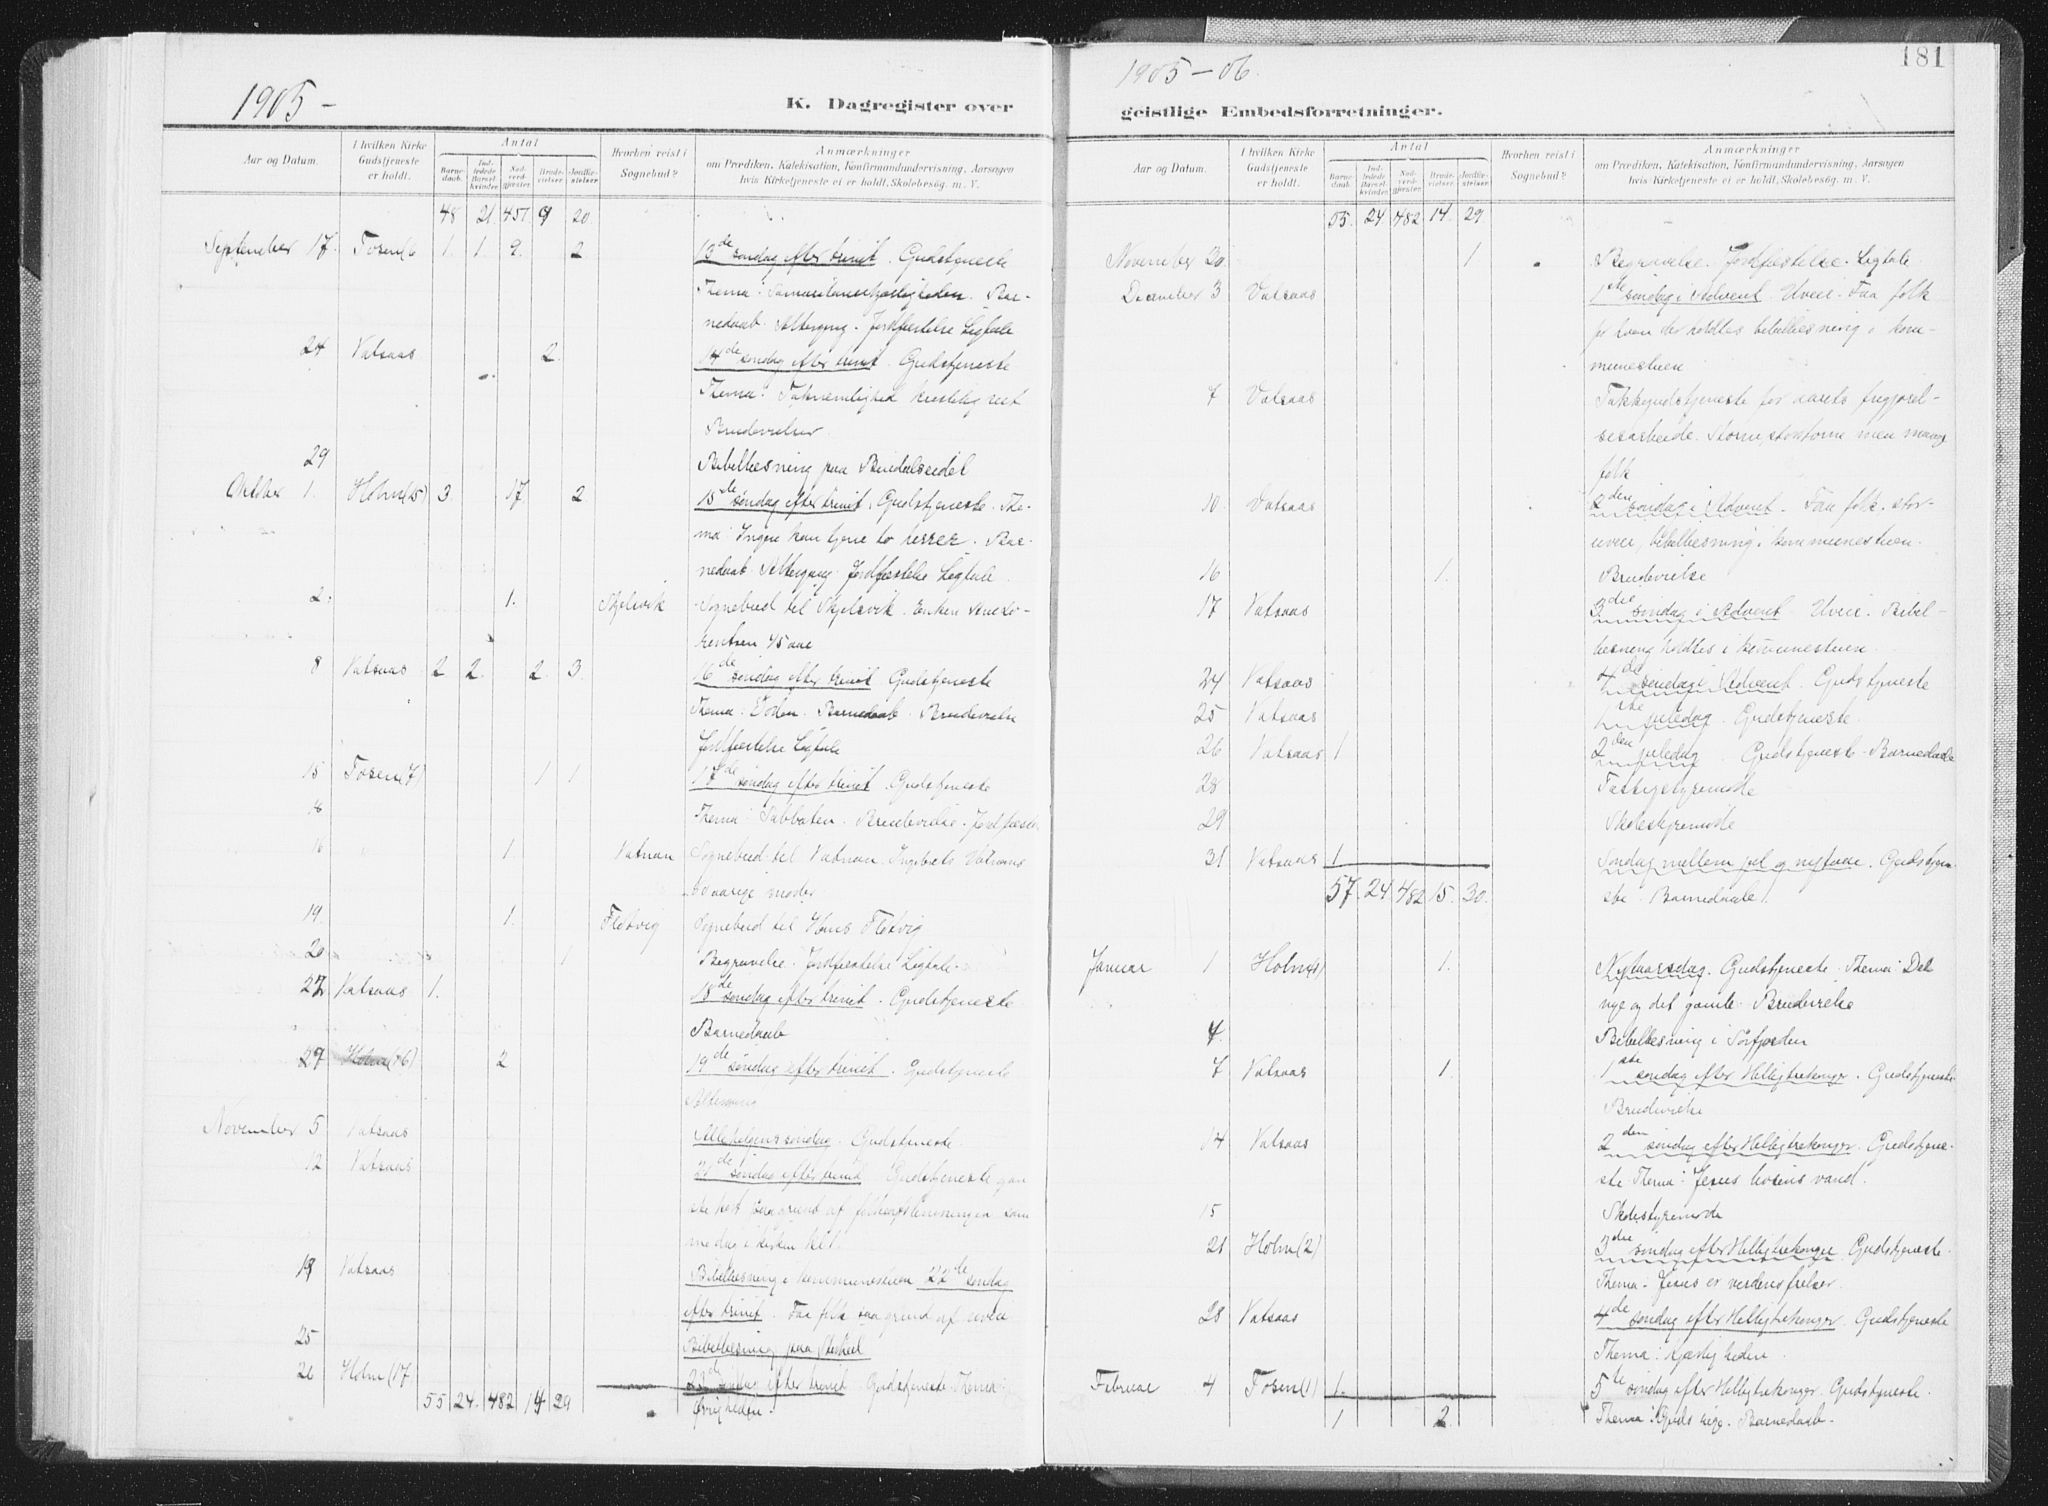 1905 –
K. Dagregister over
Aar og Datum.
I hvilken Kirke Gudstjeneste er holdt.
Antal
Barne-daab.
Ind-ledede Barsel-kvinder.
Nad-verd-gjester.
Brude-vielser.
Jordfæ-stelser.
Hvorhen reist i Sognebud?
Anmærkninger
om Prædiken, Katekisation, Konfirmandundervisning, Aarsagen
hvis Kirketjeneste ei er holdt, Skolebesøg. m. V.
48 21 451 9 20
September 17. Tosen(6 1. 1. 9. 2 13de søndag efter trinit. Gudstjeneste
Thema: Samaritanerkjærligheden. Bar-
nedaab. Altergang. Jordfæstelse Ligtale
24 Vatsaas 2. 14de søndag efter trinit. Gudstjeneste
Thema: Taknemlighed kristelig
Brudevielser.
29 Bibellæsning paa Bindalseidet
Oktober 1. Holm(15) 3. 17. 2 15de søndag efter trinit. Gudstjeneste. The-
ma: Ingen kan tjene to herrer. Bar-
nedaab. Altergang. Jordfæstelse Ligtale.
2. 1. Skjelsvik Sognebud til Skjelsvik. Enken
rentsen 75 aar
8 Vatsaas 2 2. 2. 3. 16de søndag efter trinit Gudstjeneste
Thema: Døden. Barnedaab. Brudevielse
Jordfæstelse Ligtale
15 Tosen(7) 1 1 17de søndag efter trinit. Gudstjeneste
Thema: Sabbaten. Brudevielse. Jordfæste
1. Vatnan Sognebud til Vatnan. Ingebrets Vatnans
aarige moder
19. 1. Fletvig Sognebud til Hans Fletvig
20 1 Begravelse. Jordfæstelse Ligtale.
22 Vatsaas 1. 18de søndag efter trinit. Gudstjeneste
Barnedaab
29 Holm(16) 2 19de søndag efter trinit. Gudstjeneste
Altergang
November 5 Vatsaas Allehelgenssøndag. Gudstjeneste.
12 Vatsaas 21de søndag efter trinit Gudstjeneste gan-
ske kort paa grund af folkeafstemningen som
me dag i kirken kl 1.
19 Vatsaas Bibellæsning i kommunestuen 22de søndag
efter trinit. Faa folk paa grund af uveir
25 Bibellæsning paa
26 Holm(17 23de søndag efter trinit. Gudstjeneste. Thema:
55 24. 482 14 29 Øvrigheden.
181
1905 – 06.
geistlige Embedsforretninger.
Aar og Datum.
I hvilken Kirke Gudstjeneste er holdt.
Antal
Barne-daab.
Ind-ledede Barsel-kvinder.
Nad-verd-gjester.
Brude-vielser.
Jordfæ-stelser.
Hvorhen reist i Sognebud?
Anmærkninger
om Prædiken, Katekisation, Konfirmandundervisning, Aarsagen
hvis Kirketjeneste ei er holdt, Skolebesøg. m. V.
55. 24 482 14. 29
November 30 1 Begravelse. Jordfæstelse. Ligtale.
December 3 Vatsaas 1ste søndag i Advent. Uveir. Faa folk
for hvem der holdtes bibellæsning i kom-
munestuen
7 Vatsaas Takkegudstjeneste for aarets frigjørel-
sesarbeide. Storm, men mange
folk
10. Vatsaas 2den søndag i Advent. Faa folk. stor-
uveir, bibellæsning i kommunestuen.
16 1. Brudevielse
17 Vatsaas 3die søndag i Advent. Uveir. Bibel-
læsning holdtes i kommunestuen.
24 Vatsaas 4de søndag i Advent. Gudstjeneste
25 Vatsaas 1ste juledag. Gudstjeneste.
26 Vatsaas 1 2den juledag. Gudstjeneste. Barnedaab
28 Fattigstyremøde
29 Skolestyremøde
31 Vatsaas 1 Søndag mellem jul og nytaar. Gudstjene-
57. 24. 482 15. 30. ste. Barnedaab.
Januar 1 Holm(1) 1. Nytaarsdag. Gudstjeneste. Thema: Det
nye og det gamle. Brudevielse
4. Bibellæsning i Sørfjorden
7 Vatsaas 1. 1ste søndag efter Helligtrekonger. Gudstjeneste
Brudevielse
14 Vatsaas 2den søndag efter Helligtrekonger. Gudstjene-
ste. Thema: Jesus livsens vand.
15 Skolestyremøde
21 Holm(2) 3die søndag efter Helligtrekonger. Gudstjeneste.
Thema: Jesus er verdens frelser.
28 Vatsaas 4de søndag efter Helligtrekonger. Gudstjeneste
Thema: Kjærligheden.
Februar 4 Tosen(1) 1. 5te søndag efter Helligtrekonger. Gudstjeneste.
1 2. Thema: Guds rige. Barnedaab.